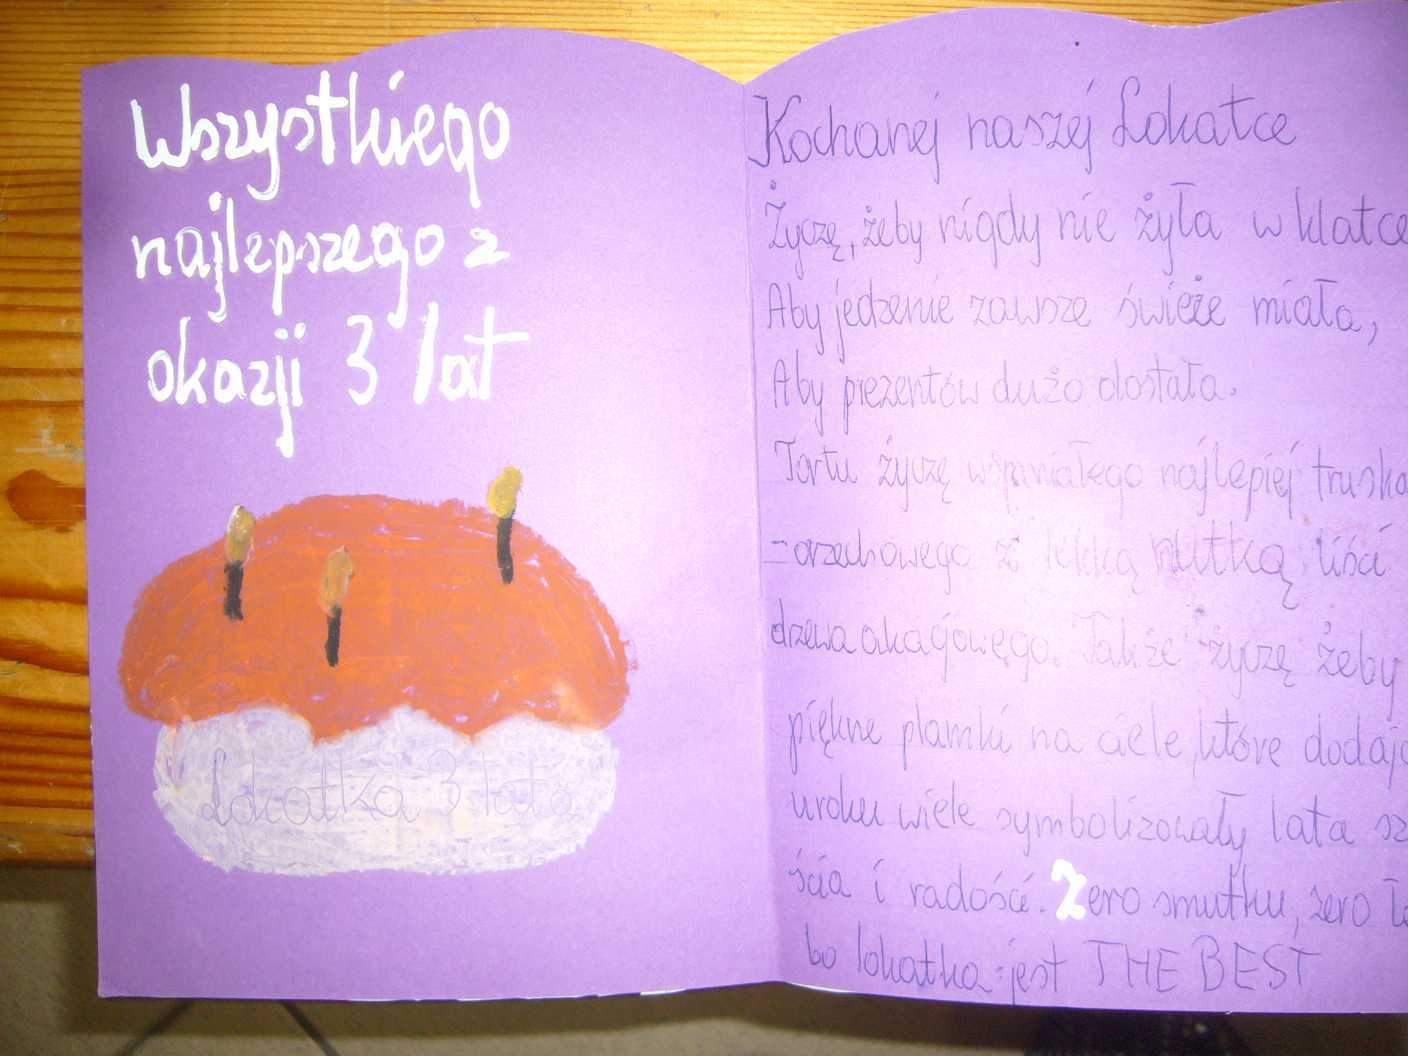 Wszystkiego
najlepszego z
okazji 3 lat
Lokatka 3 lata
Kochanej naszej Lokatce
Życzę, żeby nigdy nie żyła w klatce
Aby jedzenie zawsze świeże miała,
Aby prezentów dużo dostała.
Tortu życzę wspaniałego najlepiej truska
-orzechowego z lekką nutką liści
drzewa akacjowego. Także życzę żeby
piękne plamki na ciele, które dodają
uroku wiele symbolizowały lata sz
ścia i radości. Zero smutku, zero łe
bo lokatka jest THE BEST